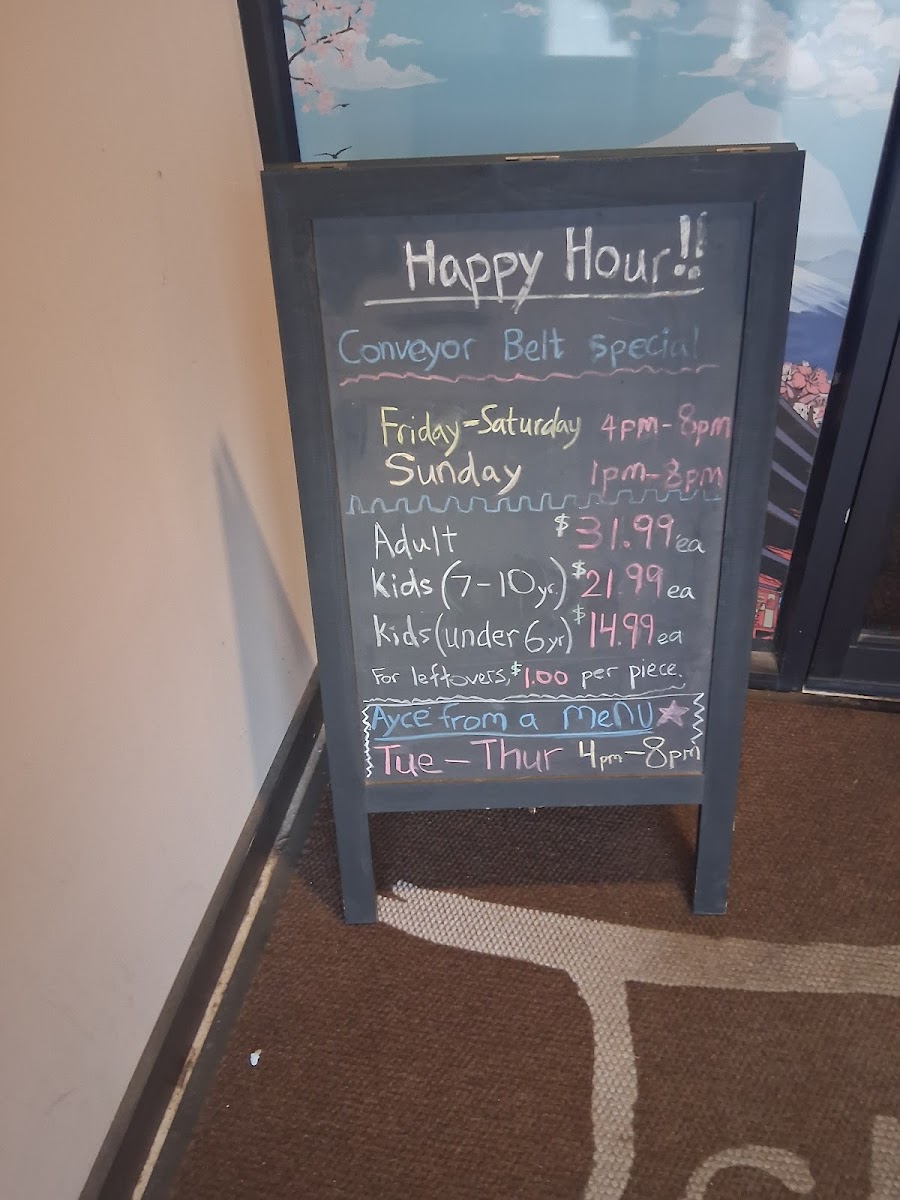 Happy Hour!!
Conveyor Belt special
Friday-Saturday 4pm-8pm
Sunday 1pm-8pm
Adult $31.99 ea
Kids (7-10yr.) $21.99 ea
Kids (under 6yr) $14.99 ea
For leftovers, $1.00 per piece.
Ayce from a MeNU
Tue - Thur 4pm-8pm